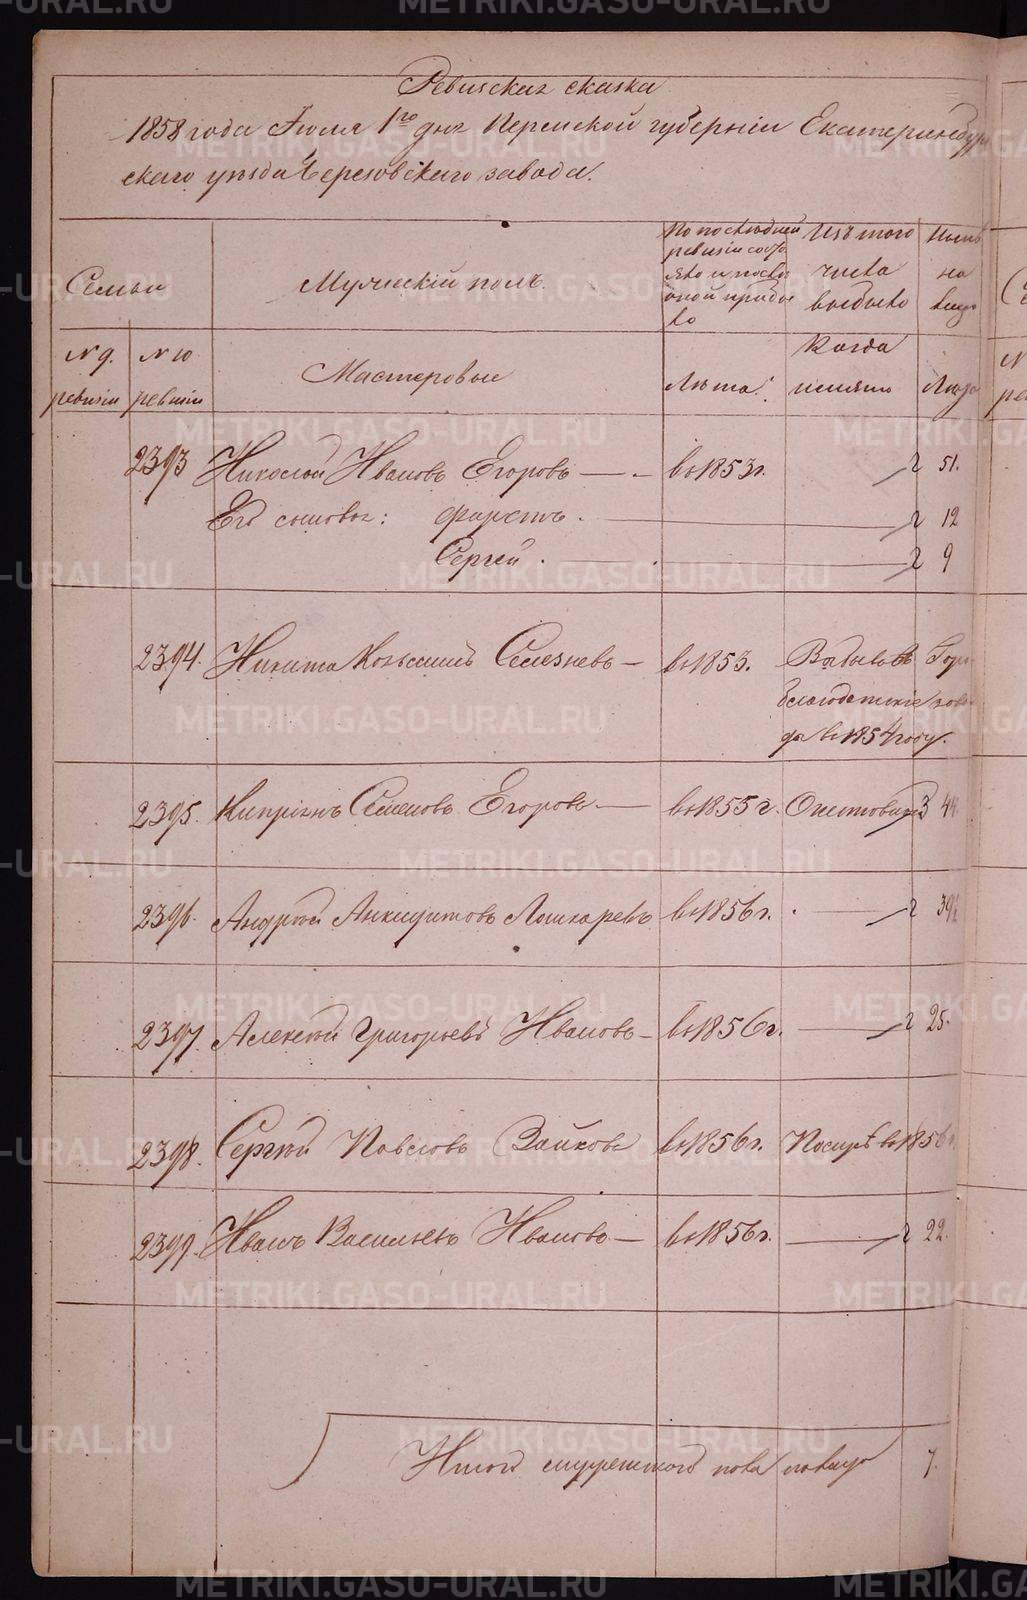 Ревизская сказка
1858 года Июля 1го дня Пермской губерніи Екатеринбур
скаго уѣзда Березовскаго завода.
Семьи
Мужескій полъ.
По послѣдней
ревизіи состо
яло и послѣ
оной прибы
ло
Изъ того
числа
выбыло
Нынѣ
на
лицо
№ 9.
ревизіи
№ 10
ревизіи
Мастеровые
Лѣта.
Когда
имянно
Лѣта
2393 Николай Ивановъ Егоровъ — в 1853 г. 51.
Его сыновья: 12
Сергей. 9
2394. Никита Козьминъ Селезневъ — в 1853. Выбылъ въ Горо
благодатскіе заво
ды в 1854 году.
2395. Кипріянъ Семеновъ Егоровъ — в 1855 г. 44
2396. Андрей Лошкаревъ в 1856 г. 39½
2397. Алексей Григорьевъ Ивановъ — в 1856 г. 25.
2398. Сергей Павловъ Зайковъ в 1856 г. Помиръ в 1856
2399. Иванъ Васильевъ Ивановъ — в 1856 г. 22.
Итого мужескаго пола на лицо 7.
METRIKI.GASO-URAL.RU